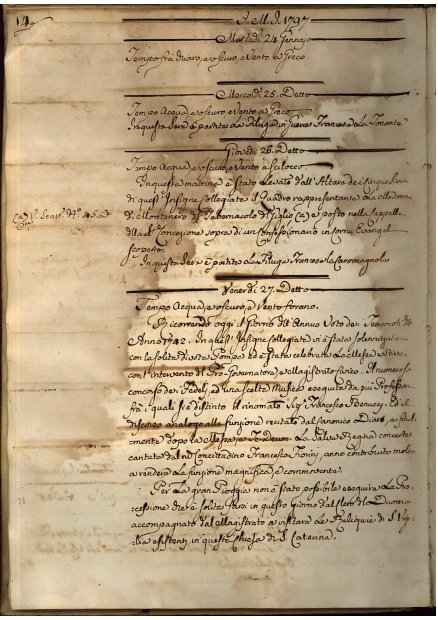 14.
J. M. J. 1797
Martedì 24 Gennajo
Tempo frà diaro, e oscuro, e Vento a Greco.
Mercoldì 25. Detto
Tempo Acqua, e oscuro, e Vento a Greco
In questa Sera è partita La Filuga in Guerra Francese La Tonante
Giovedì 26. Detto
Tempo Acqua, e oscuro, e Vento a Scilocco
In questa mattina è Stato Levato dall' Altare de
di quest' Insigne Collegiata il Quadro rappresentante La Madonna
di Montenero
e posto nella Cappell
Concezione sopra di un Confessionario in Cornu Evangel
In questa Sera è partita La Filuga Francese La Carmagnola
Venerdì 27. Detto
Tempo Acqua, e oscuro, e Vento forano.
Ricorrendo oggi il Giorno del Annuo Voto de Terremoti del
Anno 1742. In quest' Insigne Collegiata vi è Stata Solennizzata
con la solita divota Pompa ed è Stata celebrata La Messa
con l'intervento del Pro-Governatore, e Magistrato
concorso dei Fedeli, ad una scelta Musica eseguita da più Professori
frà i quali si è distinto il rinomato Sig. Francesco
discorso analogo alla funzione recitato dal Canonico
mente dopo la Messa, e Te Deum La Salve Regina concertata
cantata dal no Concittadino Francesco Fiorini, anno contribuito molto
a rendere La funzione magnifica, e commovente.
Per La gran Pioggia non è Stato possibile eseguire La Pro-
cessione che è Solita farsi in questo giorno dal Clero del Duomo
accompagnato dal Magistrato a visitare Le Reliquie di S.
esistenti in questa Chiesa di S. Caterina.